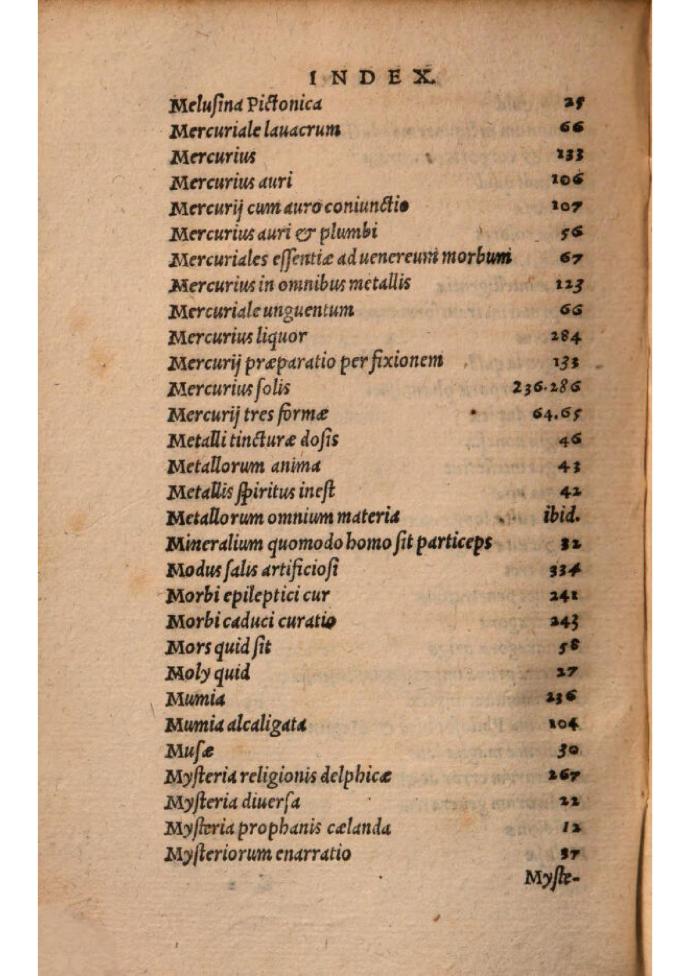 INDEX.
Melusina Pictonica 25
Mercuriale lauacrum 66
Mercurius 133
Mercurius auri 106
Mercurij cum auro coniunctio 107
Mercurius auri & plumbi 56
Mercuriales essentiæ ad uenereum morbum 67
Mercurius in omnibus metallis 123
Mercuriale unguentum 66
Mercurius liquor 284
Mercurij præparatio per fixionem 133
Mercurius solis 236.286
Mercurij tres formæ 64.65
Metalli tincturæ dosis 46
Metallorum anima 43
Metallis spiritus inest 42
Metallorum omnium materia ibid.
Mineralium quomodo homo sit particeps 32
Modus salis artificiosi 334
Morbi epileptici cur 241
Morbi caduci curatio 243
Mors quid sit 58
Moly quid 27
Mumia 236
Mumia alcaligata 104
Musæ 30
Mysteria religionis delphicæ 267
Mysteria diuersa 22
Mysteria prophanis cælanda 12
Mysteriorum enarratio 37
Myste-